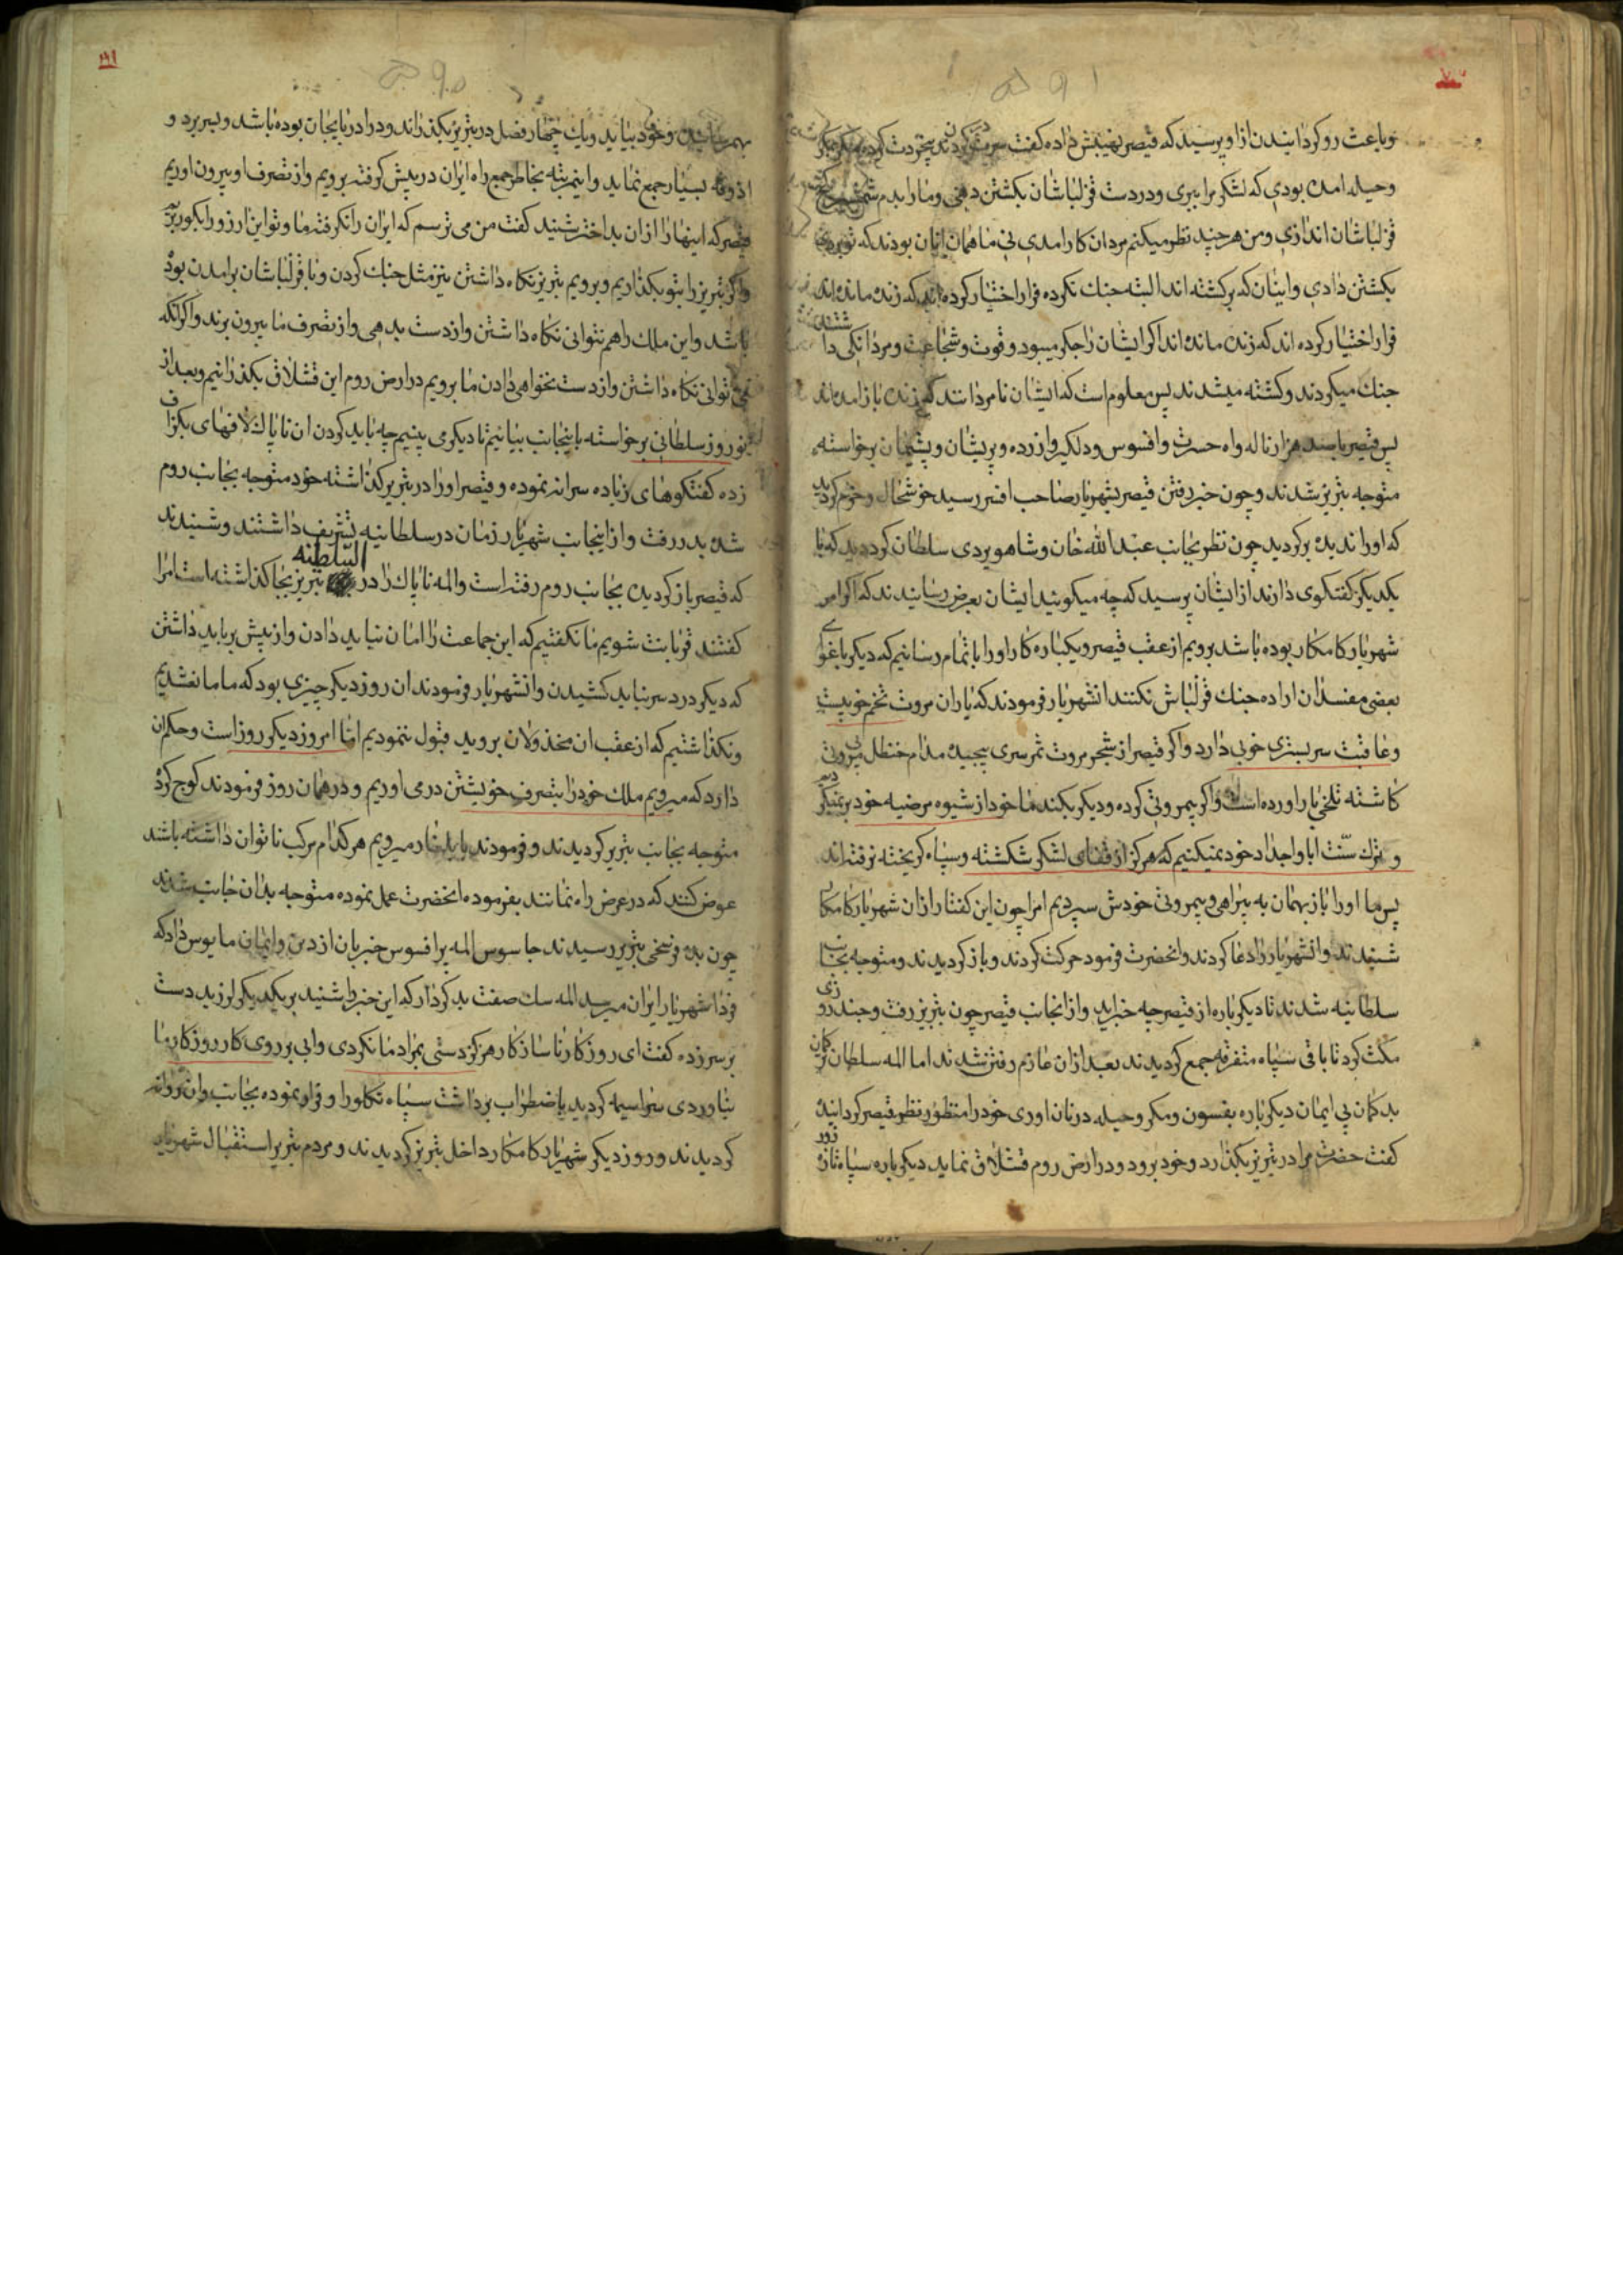 وباعث رو کردانیدن ازاو پرسید که قیصر نهیبش داده کفت
وحیله امده بودی که لشکر مرا ببری ودردست قزلباشان بکشتن دهی ومارا بدم شمشیر
قزلباشان اندازی ومن هرچند نظر میکنم مردان کار امدی نی ما همان اینان بودند که تو بردی
بکشتن دادی واینان که برکشته اند البته جنک نکرده فرار اختیار کرده اند که زنده مانده اند
فرار اختیار کرده اند که زنده مانده اند اکر ایشان را جکر میبود وقوت وشجاعت ومردانکی داشتند
جنک میکردند وکشته میشدند پس معلوم است که ایشان نامردانند که زنده باز امده اند
پس قیصر باصد هزار ناله واه حسرت وافسوس ودلکیر وازرده وپریشان وپشیمان برخواسته
متوجه تبریز شدند وچون خبر رفتن قیصر بشهریار صاحب افسر رسید خوشحال وخرم کردید
که اورا ندیده برکردید چون نظر بجانب عبدالله خان وشاهویردی سلطان کردد دید که با
یکدیکر کفتکوی دارند از ایشان پرسید که چه میکوئید ایشان بعرض رسانیدند که اکر امر
شهریار کامکار بوده باشد برویم از عقب قیصر ویکباره کار اورا باتمام رسانیم که دیکر باغوای
بعضی مفسدان اراده جنک قزلباش نکنند انشهریار فرمودند که یاران مروت تخم خوبیست
وعاقبت سرسبزی خوبی دارد واکر قیصر از شجر مروت ثمر سری پیچیده مدام حنظل بی مروتی
کاشته تلخی بار اورده است واکر بیمروتی کرده ودیکر بکند ما خود از شیوه مرضیه خود برنمیکردیم
و ترک سنّت ابا واجداد خود نمیکنیم که هرکز از قفای لشکر شکشته وسپاه کریخته نرفته اند
پس ما اورا باز بهمان به بیراهی وبیمروتی خودش سپردیم امرا چون این کفتار ازان شهریار کامکار
شنیدند وانشهریار رادعا کردند وانحضرت فرمود حرکت کردند وباز کردیدند ومتوجه بجانب
سلطانیه شدند تا دیکر باره از قیصر چه خبر اید وازانجانب قیصر چون بتبریز رفت وچند روزی
مکث کرد تا باقی سپاه متفرقه جمع کردیدند بعد ازان عازم رفتن شدند اما المه سلطان ترکمان
بدکمان بی ایمان دیکر باره بفسون ومکر وحیله درنان اوری خودرا منظور نظر قیصر کردانیده
کفت حضرت مرا در تبریز بکذارد وخود برود ودر ارض روم قشلاق نماید دیکر باره سپاه تازه زور
بهم رسانیده وخود بیاید ویک چهار فصل در تبریز بکذراند ودرادربایجان بوده باشد وبسر برد و
اذوقه بسیار جمع نماید واینمرتبه بخاطر جمع راه ایران درپیش کرفته برویم وازتصرف او بیرون اوریم
قیصر که اینهارا ازان بداختر شنید کفت من می ترسم که ایران رانکرفته ما وتو این ارزو رابکور بریم
واکر تبریز را بتو بکذاریم وبرویم تبریز نکاه داشتن نیز مثل جنک کردن وبا قزلباشان برامدن بوده
باشد واین ملک راهم نتوانی نکاه داشتن وازدست بدهی وازتصرف ما بیرون برند واکر انکه
می توانی نکاه داشتن وازدست نخواهی دادن ما برویم درارض روم این قشلاق بکذرانیم وبعد از
نوروز سلطانی برخواسته باینجانب بیائیم تا دیکر می بینیم چه باید کردن ان ناپاک لافهای بکزاف
زده کفتکوهای زیاده سرانه نموده وقیصر اورا در تبریز کذاشته خود متوجه بجانب روم
شده بدر رفت وازاینجانب شهریار زمان درسلطانیه تشریف داشتند وشنیدند
که قیصر باز کردیده بجانب روم رفته است والمه ناپاک را در السلطنه تبریز بجا کذاشته است امرا
کفتند قربانت شویم ما نکفتیم که این جماعت را امان نباید دادن وازپیش برباید داشتن
که دیکر دردسر نباید کشیدن وانشهریار فرمودند ان روز دیکر چیزی بود که ماما نغشدیم
ونکذاشتیم که ازعقب ان مخذولان بروید قبول ننمودیم اما امروز دیکر روز است وحکم ان
دارد که میرویم ملک خودرا بتصرف خویشتن درمی اوریم ودرهمان روز فرمودند کوچ کرده
متوجه بجانب تبریز کردیدند وفرمودند بایلغار میرویم هرکدام مرکب ناتوان داشته باشد
عوض کنند که درعرض راه نمانند بفرموده انحضرت عمل نموده متوجه بدان جانب شدند
چون بده فرسخی تبریز رسیدند جاسوس المه پرافسوس خبر بان ازدین وایمان مایوس داد که
فردا شهریار ایران میرسد المه سک صفت بدکردار که این خبر را شنید بریکدیکر لرزید دست
برسر زده کفت ای روزکار ناسازکار هرکز دستی بمراد ما نکردی وابی برروی کار روزکار ما
نیاوردی سراسیمه کردید باضطراب برداشت سپاه تکلورا وفرار نموده بجانب وان روانه
کردیدند وروز دیکر شهریار کامکار داخل تبریز کردیدند ومردم تبریز استقبال شهریار